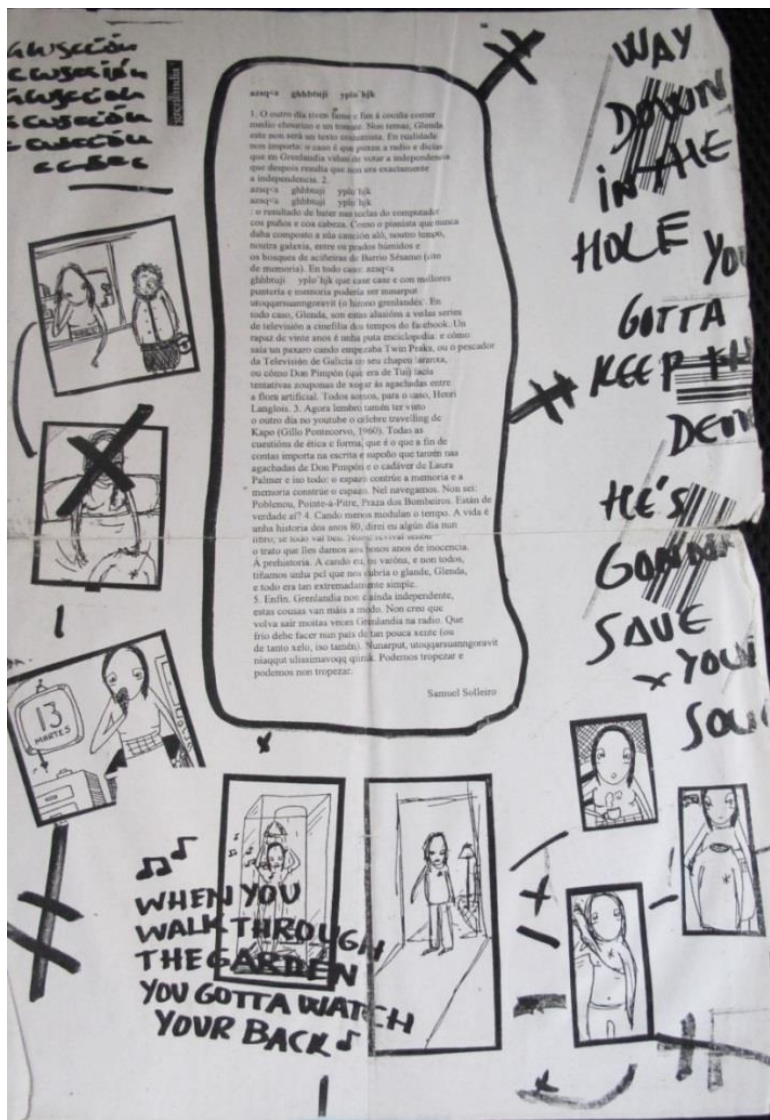 azsq<a ghhbtuji yplo`hjk
1. O outro día tiven fame e fin á cociña comer
medio chourizo e un tomate. Non temas, Glenda,
este non será un texto costumista. En realidade
non importa: o caso é que puxen a radio e dicían
que en Grenlandia viñan de votar a independencia
que despois resulta que non era exactamente
a independencia. 2.
azsq<a ghhbtuji yplo`hjk
azsq<a ghhbtuji yplo`hjk
: o resultado de bater nas teclas do computador
cos puños e coa cabeza. Como o pianista que nunca
daba composto a súa canción aló, noutro tempo,
noutra galaxia, entre os prados húmidos e
os bosques de aciñeiras de Barrio Sésamo (cito
de memoria). En todo caso: azsq<a
ghhbtuji yplo`hjk que case case e con mellores
puntería e memoria podería ser nunarput
utoqqarsuanngoravit (o himno grenlandés. En
todo caso, Glenda, son estas alusións a vellas series
de televisión a cinefilia dos tempos do facebook. Un
rapaz de vinte anos é unha puta enciclopedia: e cómo
saía un paxaro cando empezaba Twin Peaks, ou o pescador
da Televisión de Galicia co seu chapeu laranxa,
ou cómo Don Pimpón (que era de Tui) facía
tentativas zouponas de xogar ás agachadas entre
a flora artificial. Todos somos, para o caso, Henri
Langlois. 3. Agora lembro tamén ter visto
o outro día no youtube o célebre travelling de
Kapo (Gillo Pontecorvo, 1960). Todas as
cuestións de ética e forma, que é o que a fin de
contas importa na escrita e supoño que tamén nas
agachadas de Don Pimpón e o cadáver de Laura
Palmer e iso todo: o espazo constrúe a memoria e a
memoria constrúe o espazo. Nel navegamos. Non sei:
Poblenou, Pointe-à-Pitre, Praza dos Bombeiros. Están de
verdade aí? 4. Cando menos modulan o tempo. A vida é
unha historia dos anos 80, direi eu algún día nun
libro, se todo vai ben.
o trato que lles damos aos nosos anos de inocencia.
Á prehistoria. A cando eu, os varóns, e non todos,
tiñamos unha pel que nos cubría o glande, Glenda,
e todo era tan extremadamente simple.
5. Enfin. Grenlandia non é aínda independente,
estas cousas van máis a modo. Non creo que
volva saír moitas veces Grenlandia na radio. Que
frío debe facer nun país de tan pouca xente (ou
de tanto xelo, iso tamén). Nunarput, utoqqarsuanngoravit
niaqqut ulissimavoqq qiinik. Podemos tropezar e
podemos non tropezar.
Samuel Solleiro
WAY
DOWN
IN THE
HOLE
YOU
GOTTA
KEEP TH
DEVI
HE'S
GONNA
SAVE
YOU
SOU
13
MARTES
WHEN YOU
WALK THROUGH
THE GARDEN
YOU GOTTA WATCH
YOUR BACK